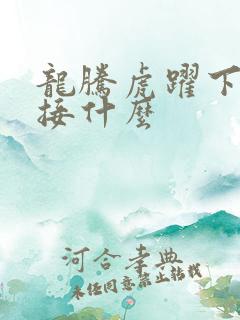 龍騰虎躍下
接什麼
河合孝典
未经同意禁止转载